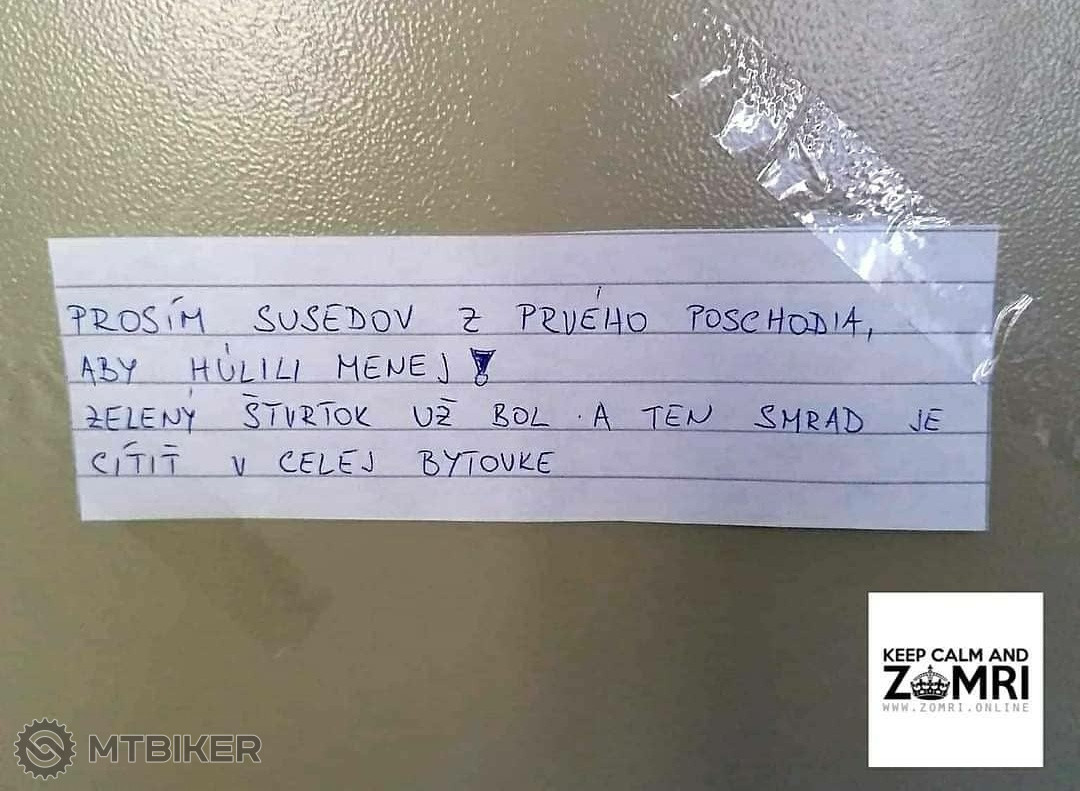 PROSÍM SUSEDOV Z PRVÉHO POSCHODIA,
ABY HÚLILI MENEJ!
ZELENÝ ŠTVRTOK UŽ BOL. A TEN SMRAD JE
CÍTIŤ V CELEJ BYTOVKE
KEEP CALM AND
ZOMRI
WWW.ZOMRI.ONLINE
MTBIKER